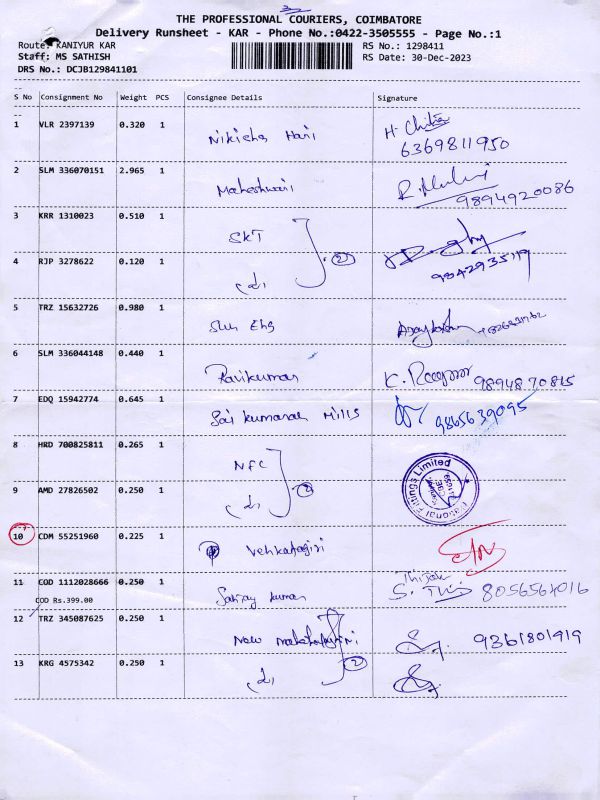 THE PROFESSIONAL COURIERS, COIMBATORE
Delivery Runsheet - KAR - Phone No.:0422-3505555 - Page No.:1
Route: KANIYUR KAR
RS No.: 1298411
Staff: MS SATHISH
RS Date: 30-Dec-2023
DRS No.: DCJB129841101
S No Consignment No Weight PCS Consignee Details Signature
1 VLR 2397139 0.320 1 Hari
6369811950
2 SLM 336070151 2.965 1 Maheshwari
9894920086
3 KRR 1310023 0.510 1 SKT
4 RJP 3278622 0.120 1 (2)
9842935119
5 TRZ 15632726 0.980 1
6 SLM 336044148 0.440 1 Ravikumar 9894870815
7 EDQ 15942774 0.645 1 Sai Kumaran Mills 9865639095
8 HRD 700825811 0.265 1 NFC
National Fittings Limited
9 AMD 27826502 0.250 1 (2)
10 CDM 55251960 0.225 1 Venkatagiri
11 COD 1112028666 0.250 1 Sanjay kumar 8056564016
COD Rs.399.00
12 TRZ 345087625 0.250 1 New 9361801919
13 KRG 4575342 0.250 1 (2)